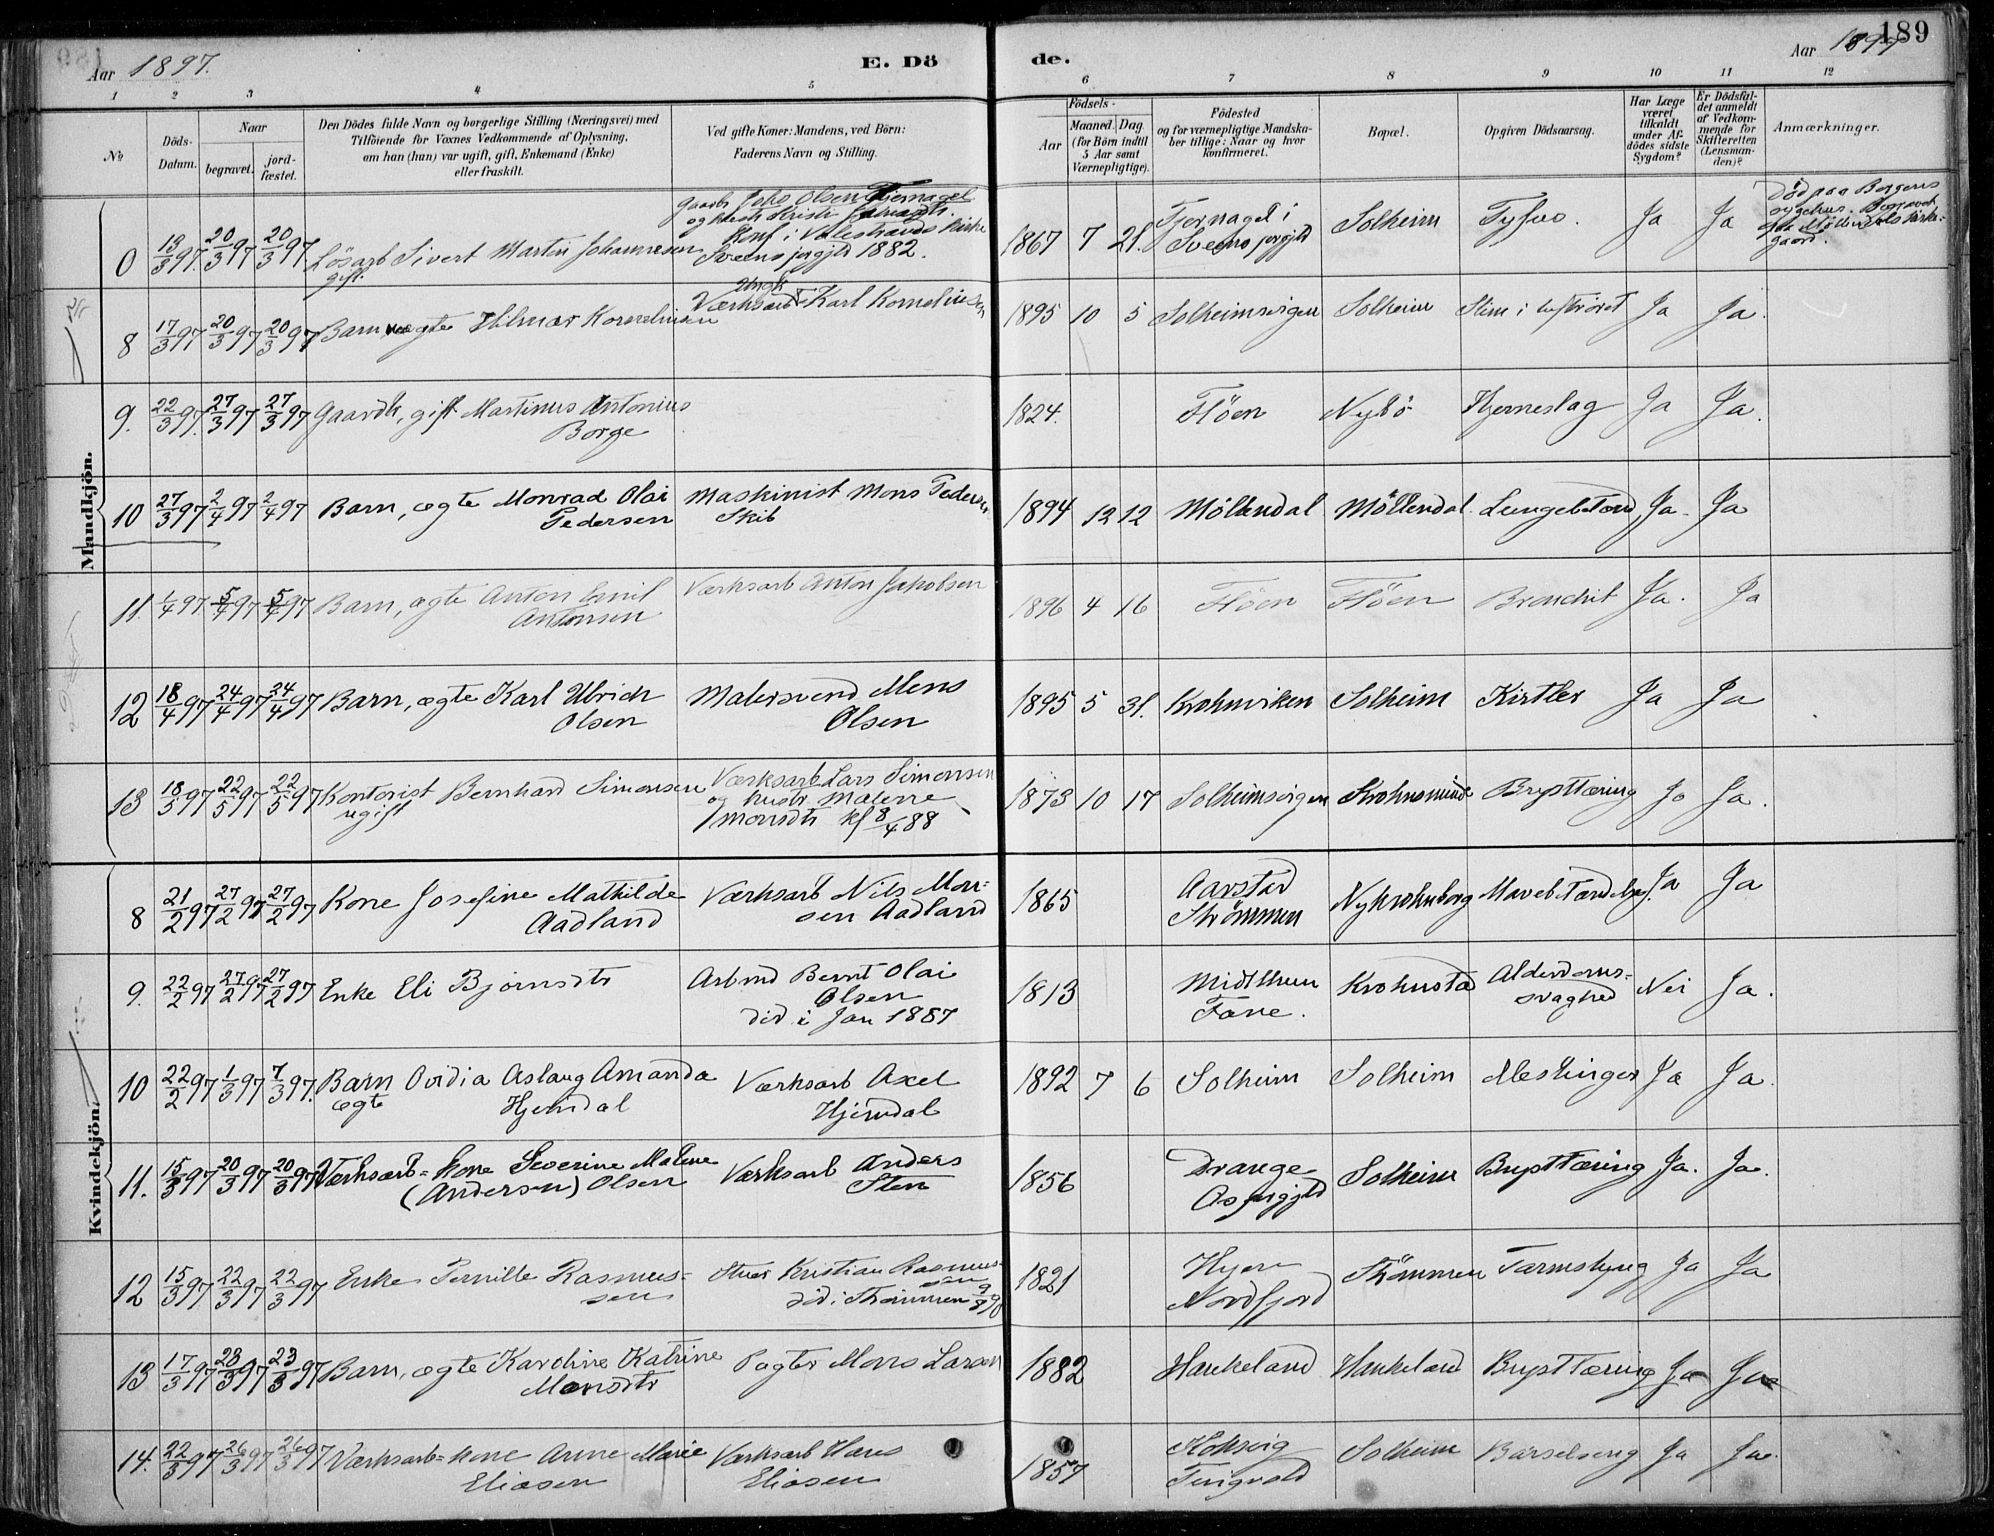 189
Aar 1897. E. Dö de. Aar 1897
1 2 3 4 5 6 7 8 9 10 11 12
No
Döds-Datum.
Naar
begravet.
jord-fæstet.
Den Dödes fulde Navn og borgerlige Stilling (Næringsvei) med
Tilföiende for Voxnes Vedkommende af Oplysning,
om han (hun) var ugift, gift, Enkemand (Enke)
eller fraskilt.
Ved gifte Koner: Mandens, ved Börn:
Faderens Navn og Stilling.
Födsels-
Aar
Maaned. Dag
(for Börn indtil
5 Aar samt
Værnepligtige).
Födested
og for værnepligtige Mandska-
ber tillige: Naar og hvor
konfirmeret.
Bopæl.
Opgiven Dödsaarsag.
Har Læge
været
tilkaldt
under Af-
dödes sidste
Sygdom?
Er Dödsfal-
det anmeldt
af Vedkom-
mende for
Skifteretten
(Lensman-
den)?
Anmærkninger.
Mandkjön.
0 13/3 97. 20/3 97 20/3 97 Lösarb Sivert Martin Johannesen
gift.
Gaardb Johs Olsen Tjernagel
og hustr Kristi
Konf i Valestrands kirke
Sveens prgjld 1882.
1867 7 21. Tjernagel i
Sveens prgjld
Solheim Tyfus. Ja Ja
Död paa Bergens
sygehus. Begravet
paa Möllendals kirke-
gaard.
8 17/3 97 20/3 97 20/3 97 Barn uægte Hilmar Kornelius
Værksarb Karl Korneliussen
1895 10 5 Solheimsvigen Solheim Slim i luftröret Ja Ja.
9. 22/3 97. 27/3 97 27/3 97 Gaardb, gift Martinus Antonius
Borge
1824. Flöen Nybö Hjerneslag Ja Ja.
10 27/3 97 2/4 97 2/4 97 Barn, ægte Monrad Olai
Pedersen
Maskinist Mons Pedersen
Skib
1894 12 12 Möllendal Möllendal Lungebetænd. Ja. Ja
11. 1/4 97. 5/4 97 5/4 97 Barn, ægte Anton Emil
Antonsen
Værksarb Anton Jakobsen
1896 4 16 Flöen Flöen Bronchit Ja. Ja
12 18/4 97 24/4 97 24/4 97 Barn, ægte Karl Ulrich
Olsen
Malersvend Mons
Olsen
1895 5 31. Krohnviken Solheim Kirtler Ja Ja
13 18/5 97 22/5 97 22/5 97 Kontorist Bernhard Simonsen
ugift
Værksarb Lars Simonsen
og hustr Malene
Monsdtr kf 8/4 88
1873 10 17 Solheimsvigen Krohnsminde Brysttæring Ja Ja.
Kvindekjön.
8 21/2 97 27/2 97 27/2 97 Kone Josefine Mathilde
Aadland
Værksarb Nils Mon-
sen Aadland
1865 Aarstad
Strömmen
Nykrohnborg Mavebetændelse. Ja Ja
9. 22/2 97 27/2 97 27/2 97 Enke Eli Björnsdtr
Arbmd Bernt Olai
Olsen
död i Jan 1887
1813 Midtthun
Fane.
Krohnstad Alderdoms-
svaghed
Nei Ja.
10 22/2 97 1/3 97 7/3 97. Barn Ovidia Aslaug Amanda
ægte Hjemdal
Værksarb Axel
Hjemdal
1892 7 6 Solheim Solheim Meslinger Ja Ja.
11. 15/3 97 20/3 97 20/3 97 Værksarb=kone Severine Malene
(Andersen) Olsen
Værksarb Anders
Sten
1856 Drange
Os prgjld
Solheim Brysttæring Ja. Ja.
12 15/3 97 22/3 97 22/3 97 Enke Pernille Rasmus-
sen
Stuer Kristian Rasmus-
sen
död i Strömmen 9/8 90
1821 Hyen
Nordfjord
Strömmen Tarmslyng Ja Ja
13 17/3 97 23/3 97 23/3 97 Barn, ægte Karoline Katrine
Monsdtr
Pagter Mons Larsen
1882 Haukeland Haukeland Brysttæring Ja Ja
14. 22/3 97 26/3 97 26/3 97 Værksarb=kone Anne Marie
Eliasen
Værksarb Hans
Eliasen
1857
Tingvold
Solheim Barselseng Ja Ja.